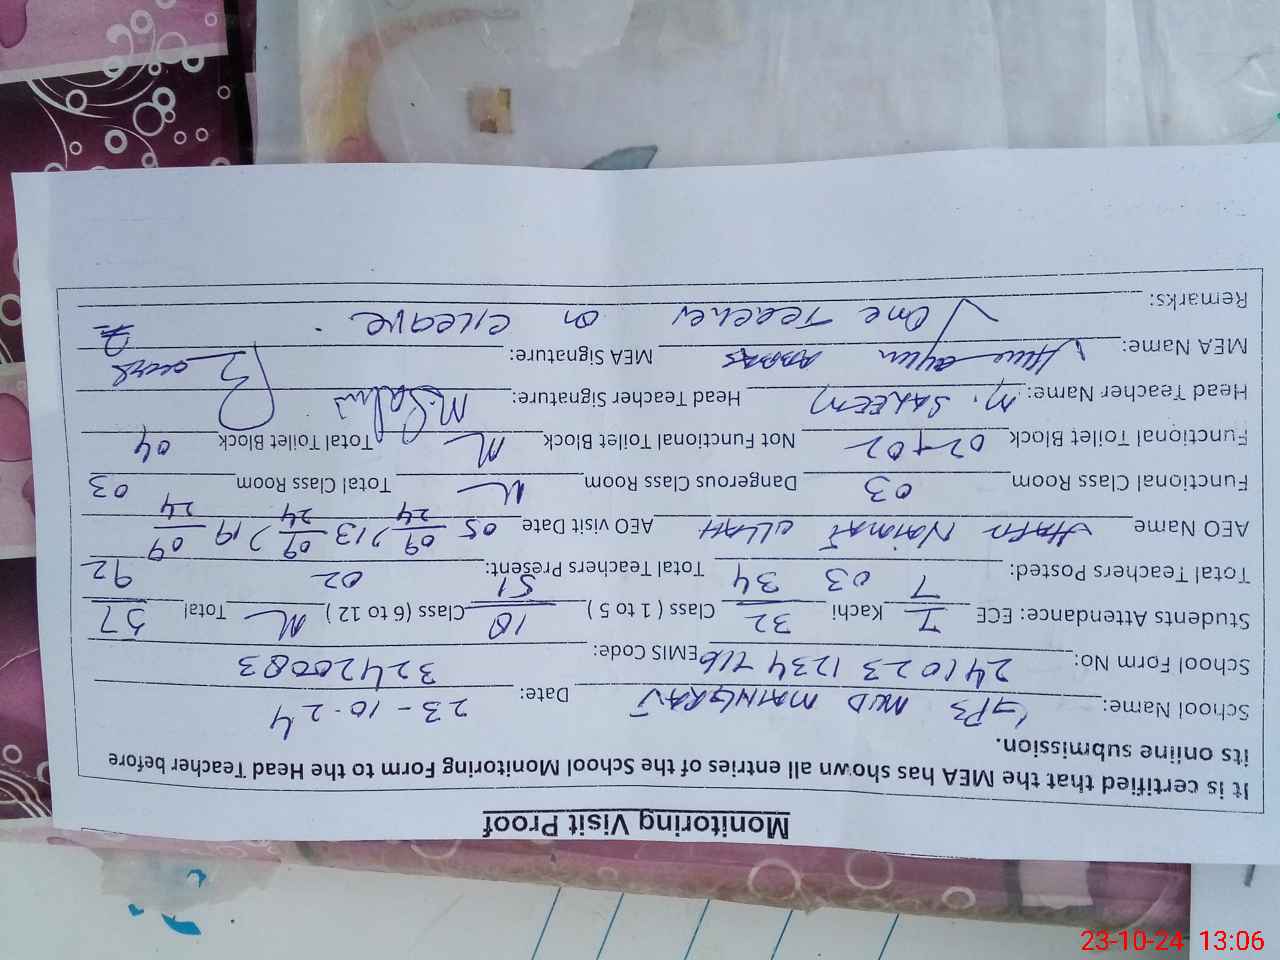 Monitoring Visit Proof
It is certified that the MEA has shown all entries of the School Monitoring Form to the Head Teacher before
its online submission.
School Name: GPS MUD MAINGRAJ Date: 23-10-24
School Form No: 241023 1234 716 EMIS Code: 32420083
Students Attendance: ECE Kachi 32/34 Class ( 1 to 5 ) 18/51 Class (6 to 12 ) Total 57/92
Total Teachers Posted: 03 Total Teachers Present: 02
AEO Name ULLAH AEO visit Date 05 09/24, 13 09/24, 19 09/24
Functional Class Room 03 Dangerous Class Room Total Class Room 03
Functional Toilet Block 02+02 Not Functional Toilet Block Total Toilet Block 04
Head Teacher Name: M. SALEEM Head Teacher Signature: M.Salim
MEA Name: MEA Signature:
Remarks: One Teacher on cleave.
23-10-24 13:06